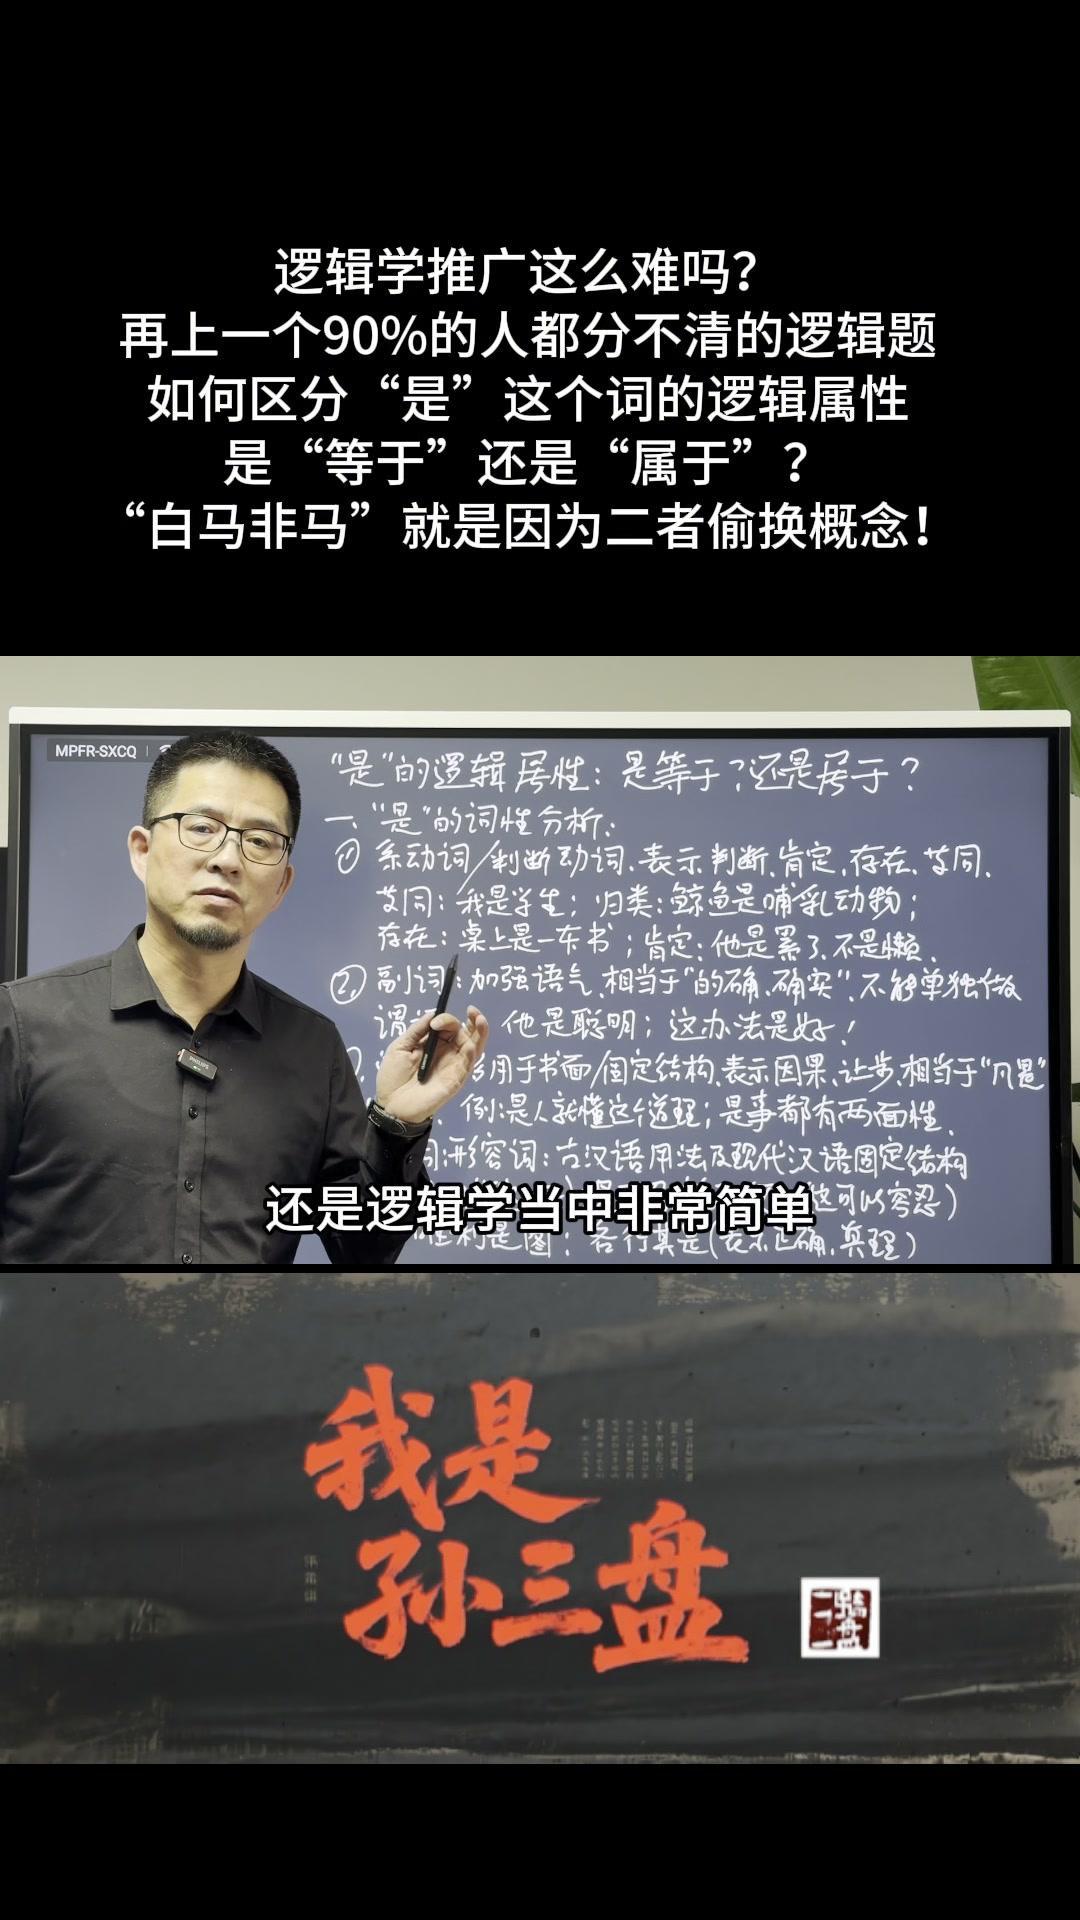 逻辑学推广这么难吗？
再上一个90%的人都分不清的逻辑题
如何区分“是”这个词的逻辑属性
是“等于”还是“属于”？
“白马非马”就是因为二者偷换概念！
MPFR-SXCQ
“是”的逻辑属性：是等于？还是居于？
一、“是”的词性分析：
① 系动词/判断动词、表示判断、肯定、存在、等同、
等同：我是学生；归类：鲸鱼是哺乳动物；
存在：桌上是一本书；肯定：他是累了、不是懒、
②副词：加强语气、相当于“的确、确实”、不能单独做
谓 他是聪明；这办法是好！
用于书面/固定结构、表示因果、让步、相当于“凡是”
例：是人就懂这个道理；是事都有两面性、
词：形容词：古汉语用法及现代汉语固定结构
可以容忍）
利是图；各行其是（表示正确、真理）
还是逻辑学当中非常简单
我是
孙三盘